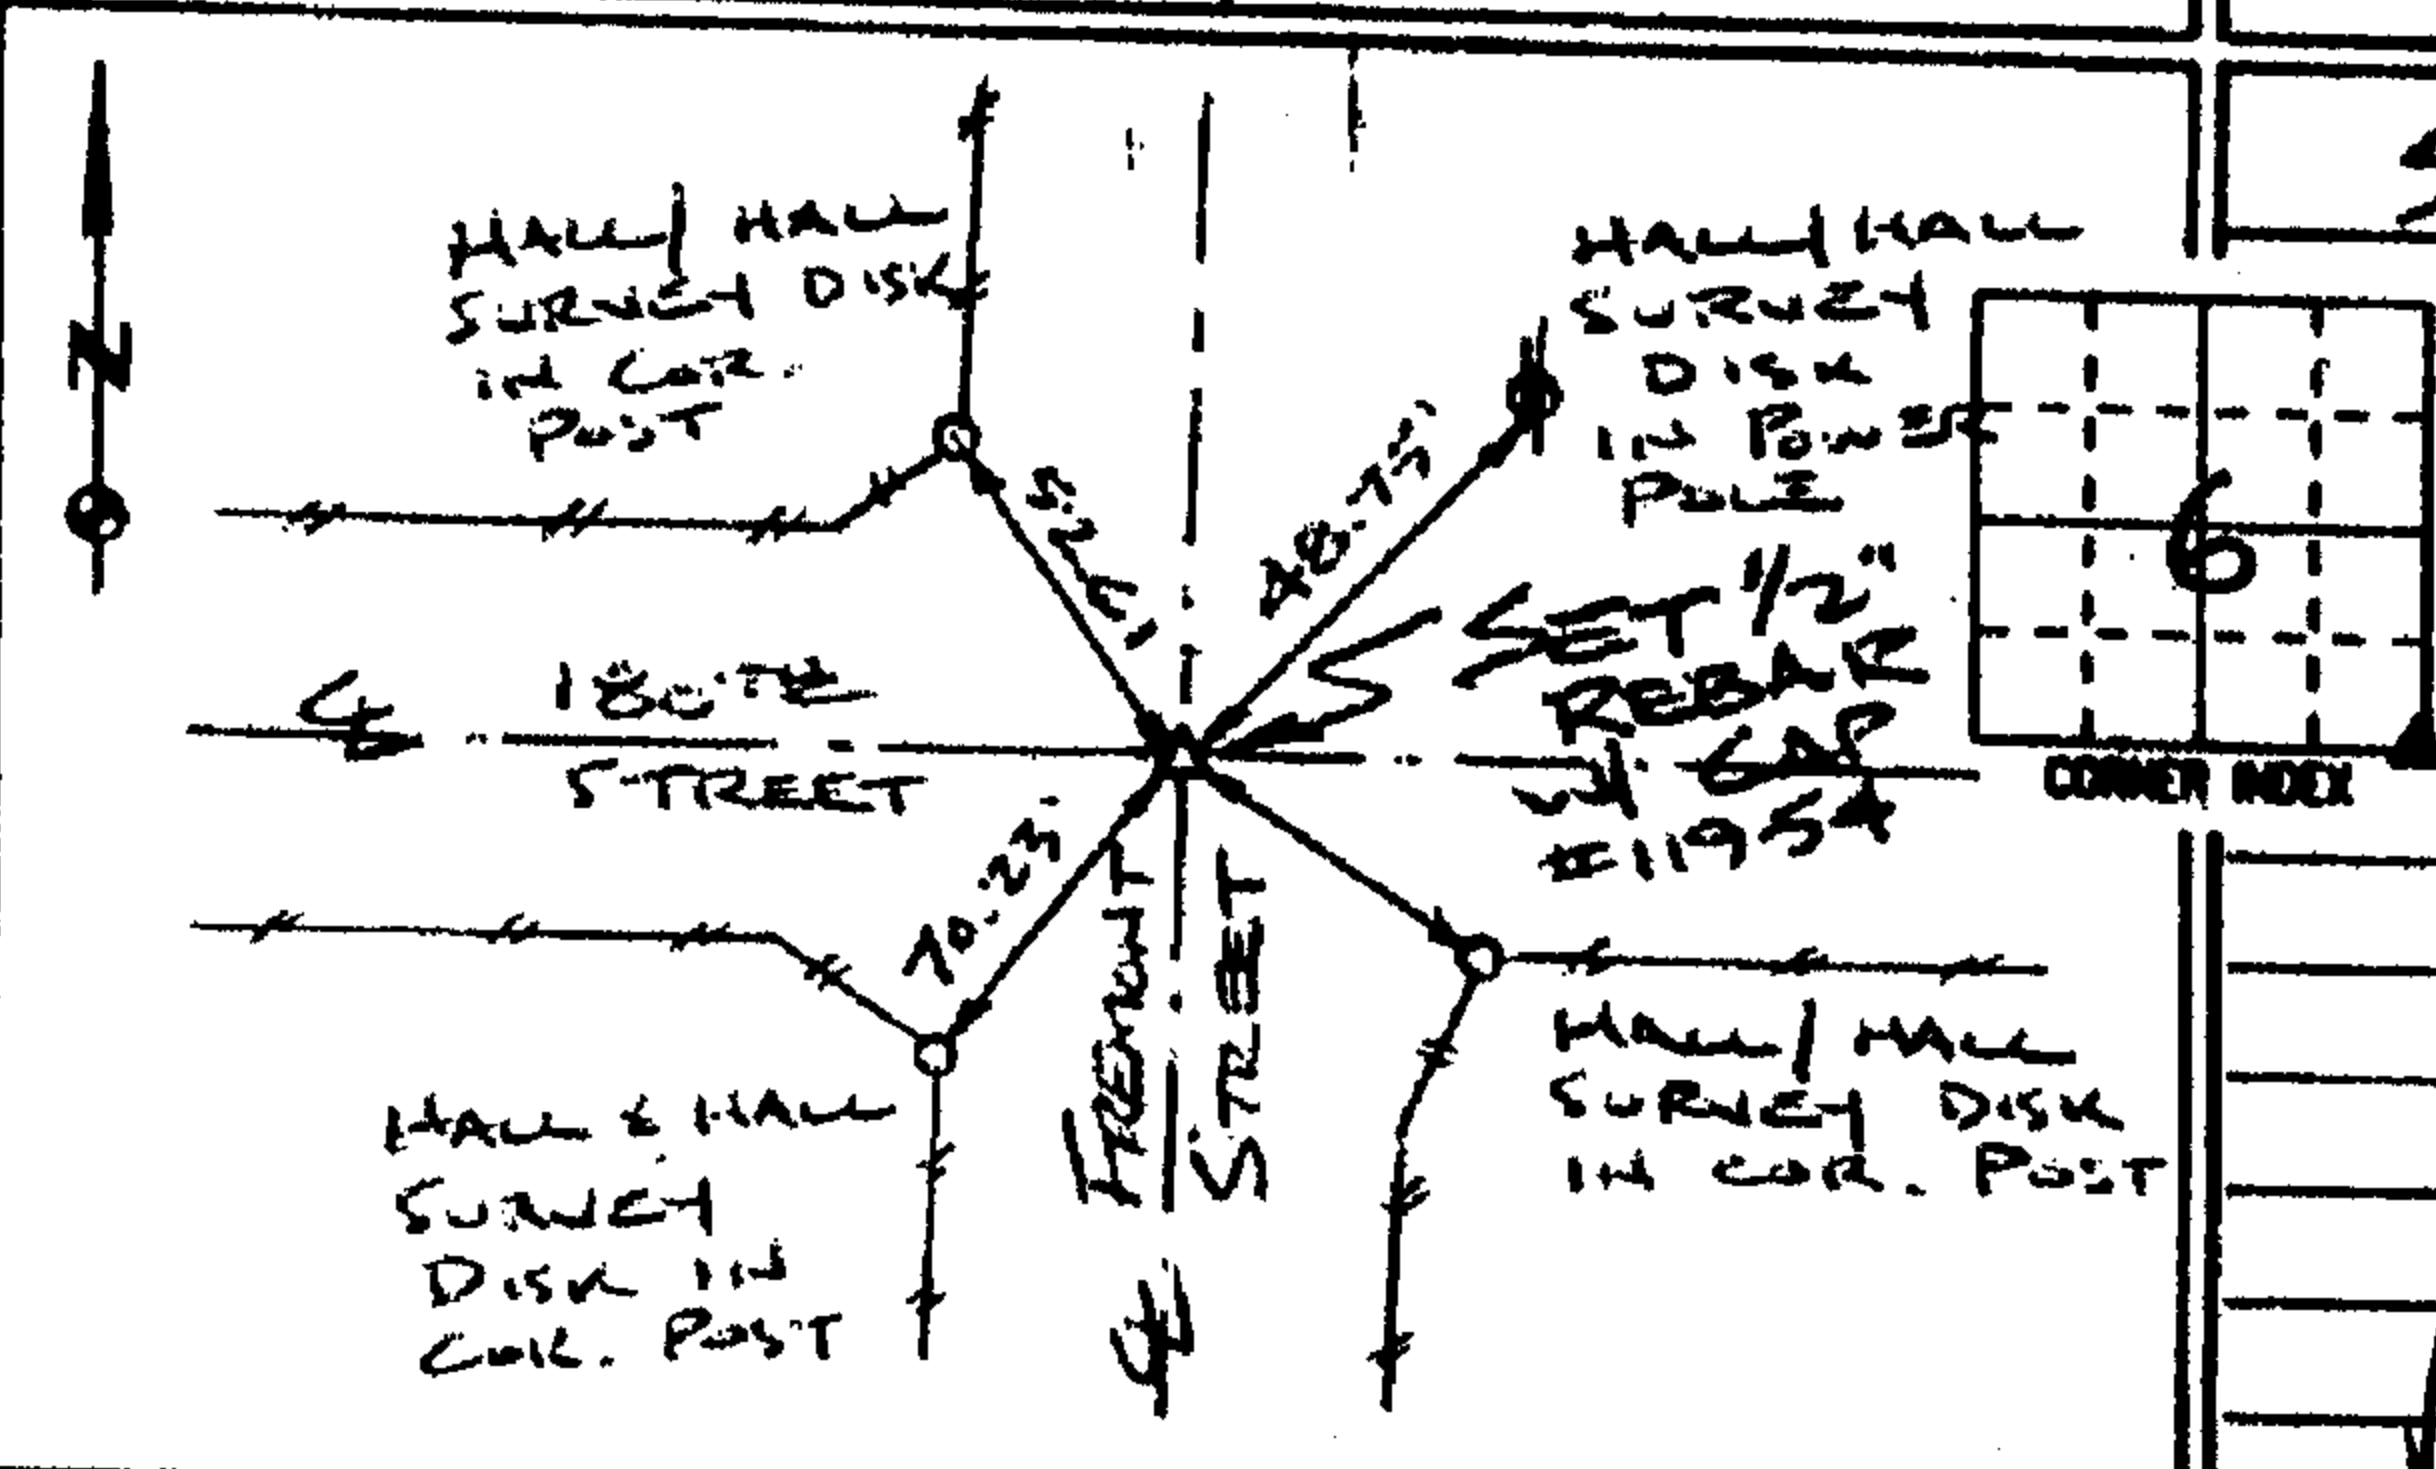 N
HALL / HALL
SURVEY DISK
IN COR.
POST
HALL / HALL
SURVEY
DISK
IN POWER
POLE
48.75'
6
SET 1/2"
REBAR
W/ CAP
#11954
CORNER INDEX
℄ 180TH
STREET
70.23'
STREET
℄
HALL / HALL
SURVEY DISK
IN COR. POST
HALL & HALL
SURVEY
DISK IN
COR. POST